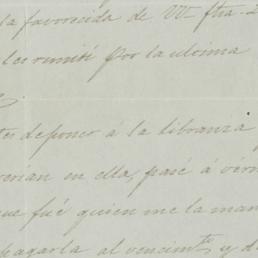 la favorecida de VV. fha. 2
les remití por la ultima
tes de poner á la libranza
verian en ella, pasé á vérm
que fué quien me la man
pagarla al vencimto, y d